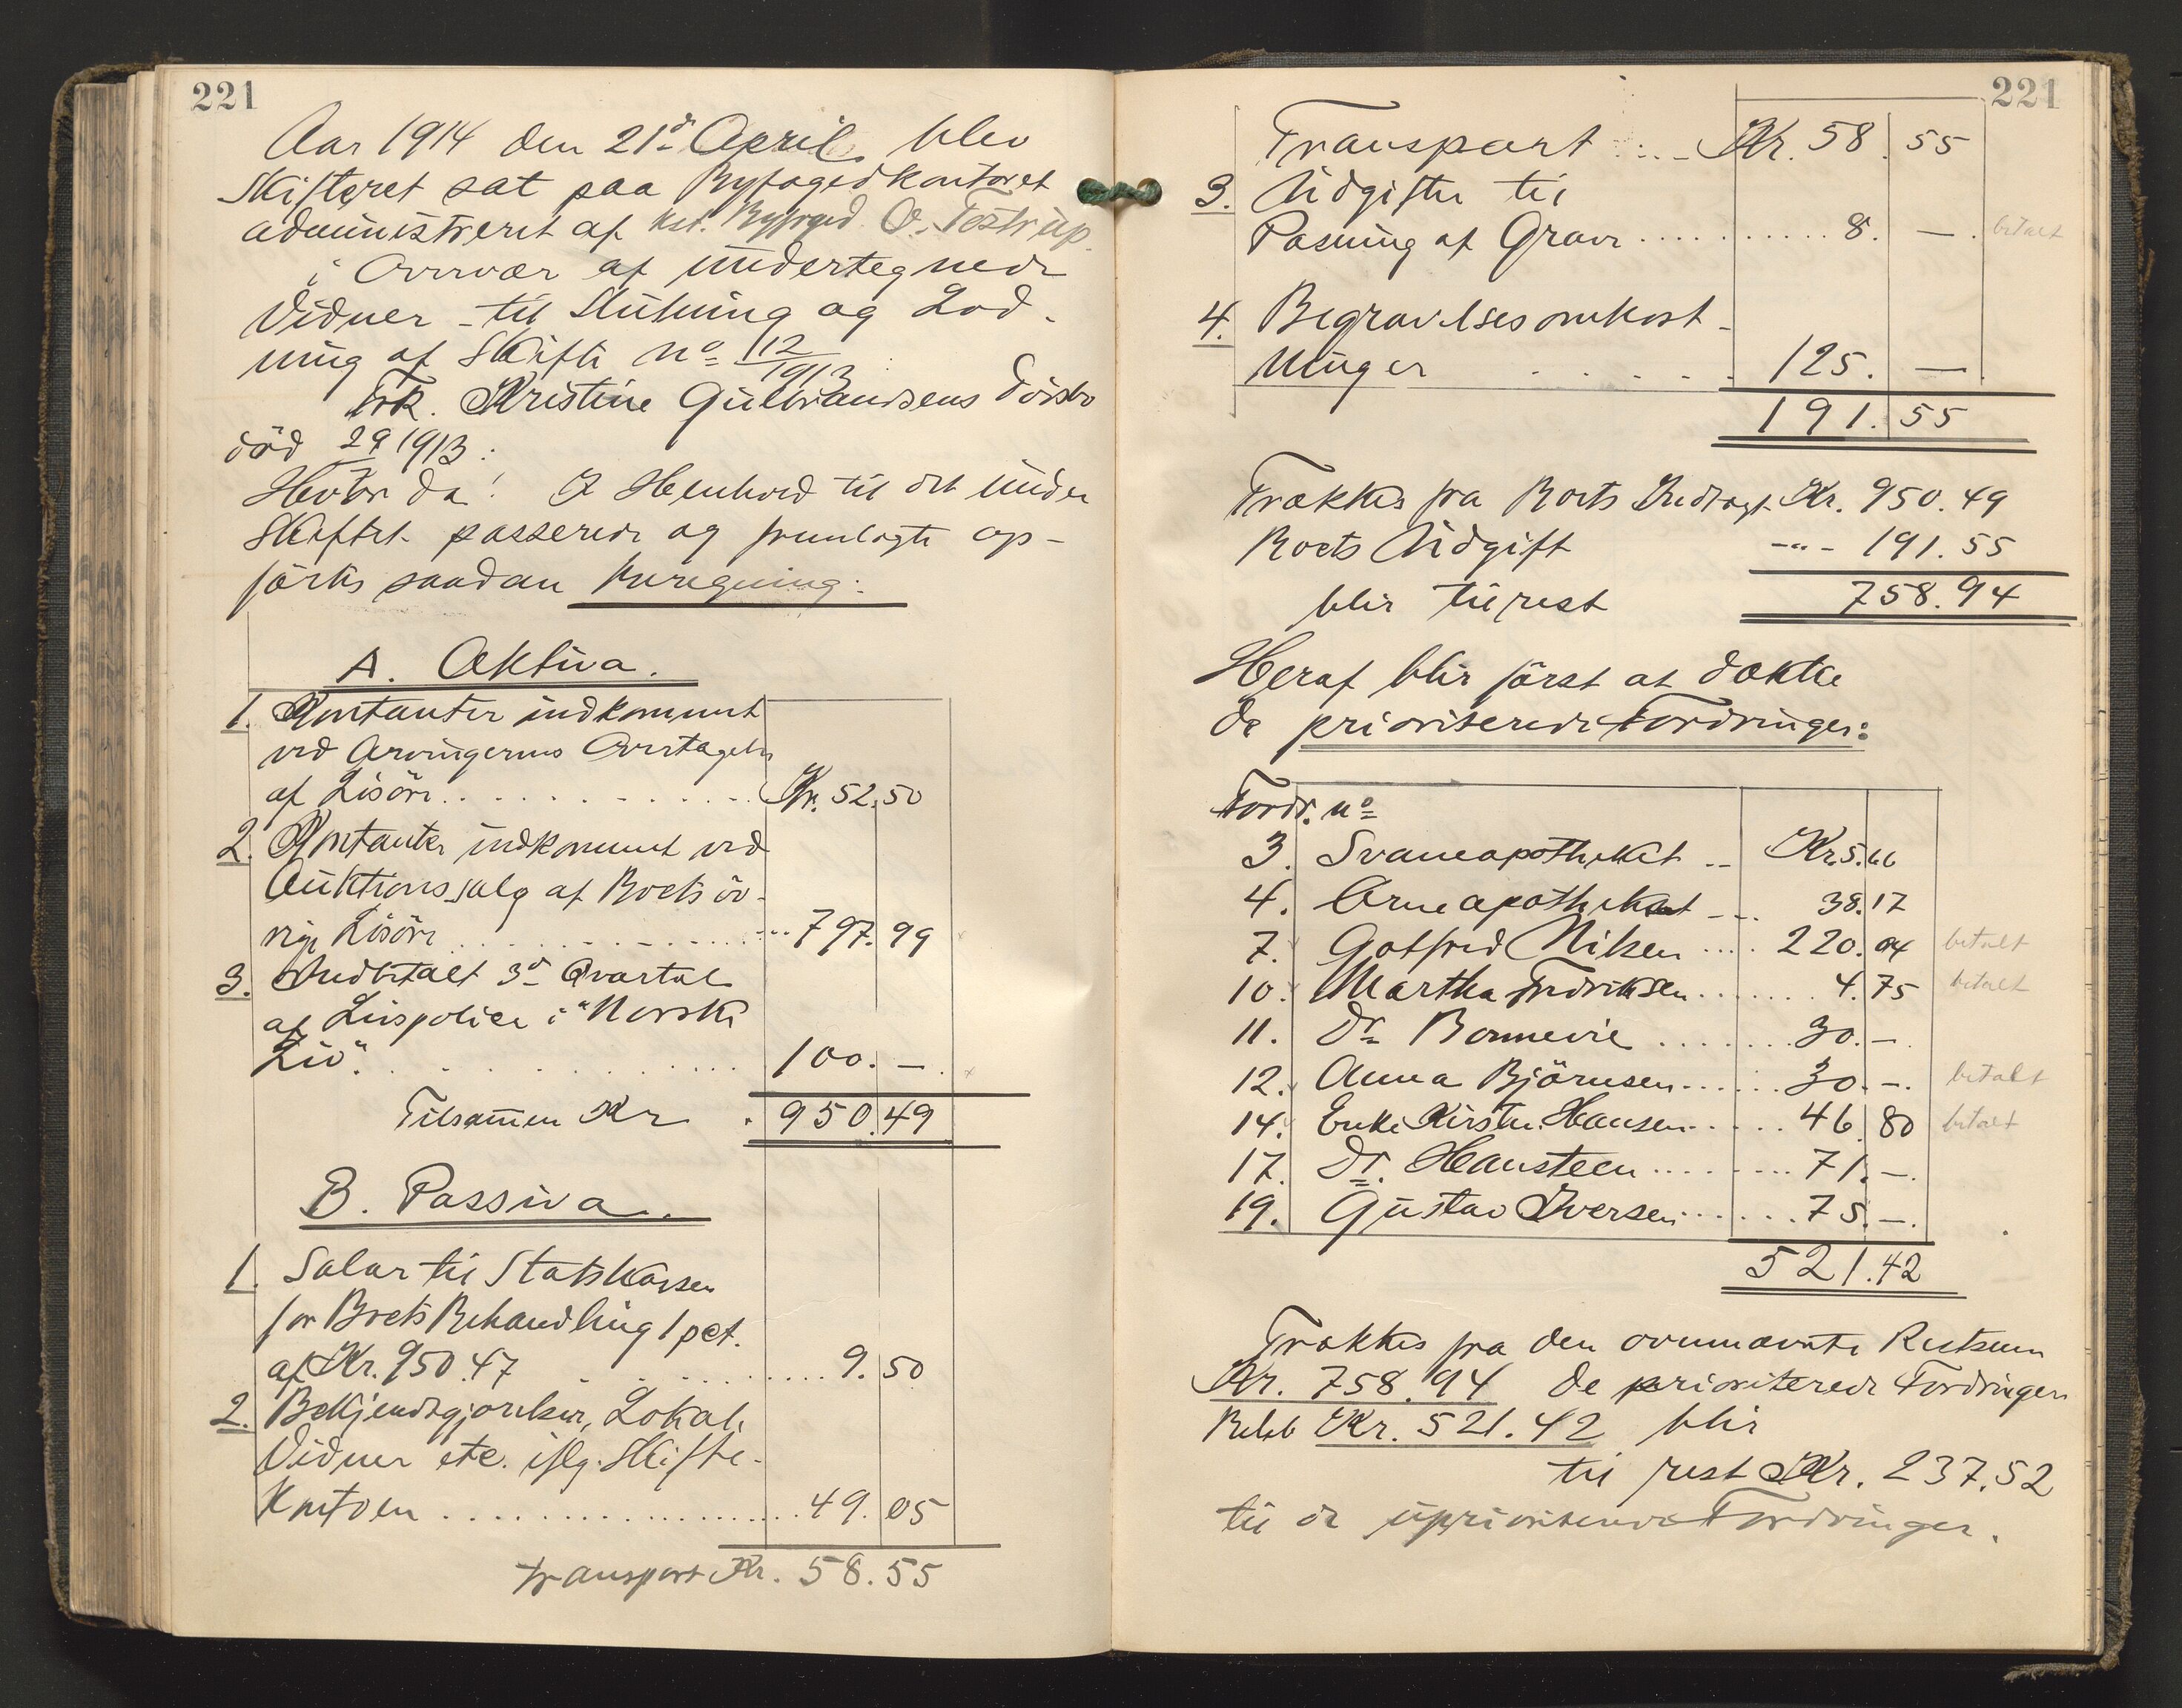 221
Aar 1914 den 21d April blev
Skifteret sat paa Byfogedkontoret
administreret af kst. Byfoged O. Testrup
i Overvær af undertegnede
Vidner til Slutning og Lod-
ning af Skifte No 112/1913:
Frk. Kristine Gulbrandsens Dødsbo
död 29 1913:
Hvor da! I Henhold til det under
Skiftet passerede og fremlagte op-
förtes saadan Boregning:
A. Aktiva.
1. Kontanter indkommet
ved Arvingernes Overtagelse
af Lösöre . . . Kr. 52.50
2. Kontanter indkommet ved
Auktionssalg af Boets öv-
rige Lösöre . . . 797.99
3. Indbetalt 3d Qvartal
af Livspolice i "Norske
Liv" . . . 100. —
Tilsammen Kr. 950.49
B. Passiva.
1. Salar til Statskassen
for Boets Behandling 1 pct.
af Kr. 950.47 . . . 9.50
2. Bekjendtgjørelser, Lokale
Vidner etc. iflg. Skifte-
Kontoen . . . 49.05
transport Kr. 58.55
221
Transport . . . Kr. 58.55
3. Udgifter til
Pasning af Grave . . . 8. — betalt
4. Begravelsesomkost-
ninger . . . 125. —
191.55
Trækkes fra Boets Indtægt Kr. 950.49
Boets Udgift -"- 191.55
blir tilrest 758.94
Heraf blir först at dække
de prioriterede Fordringer:
Fordr. no
3. Svaneapotheket . . Kr. 5.66
4. Örneapotheket . . . 38.17
7. Gotfred Nilsen . . . 220.04 betalt
10. Martha Fredriksen . . . 4.75 betalt
11. Dr Bonnevie . . . 30. —
12. Anna Björnsen . . . 30. — betalt
14. Enke Kirstine Hansen . . . 46.80 betalt
17. Dr. Hansteen . . . 71. —
19. Gustav Iversen . . . 75. —
521.42
Trækkes fra den ovennævnte Restsum
Kr. 758.94 de prioriterede Fordringers
Belöb Kr. 521.42 blir
til rest Kr. 237.52
til de uprioriterede Fordringer.